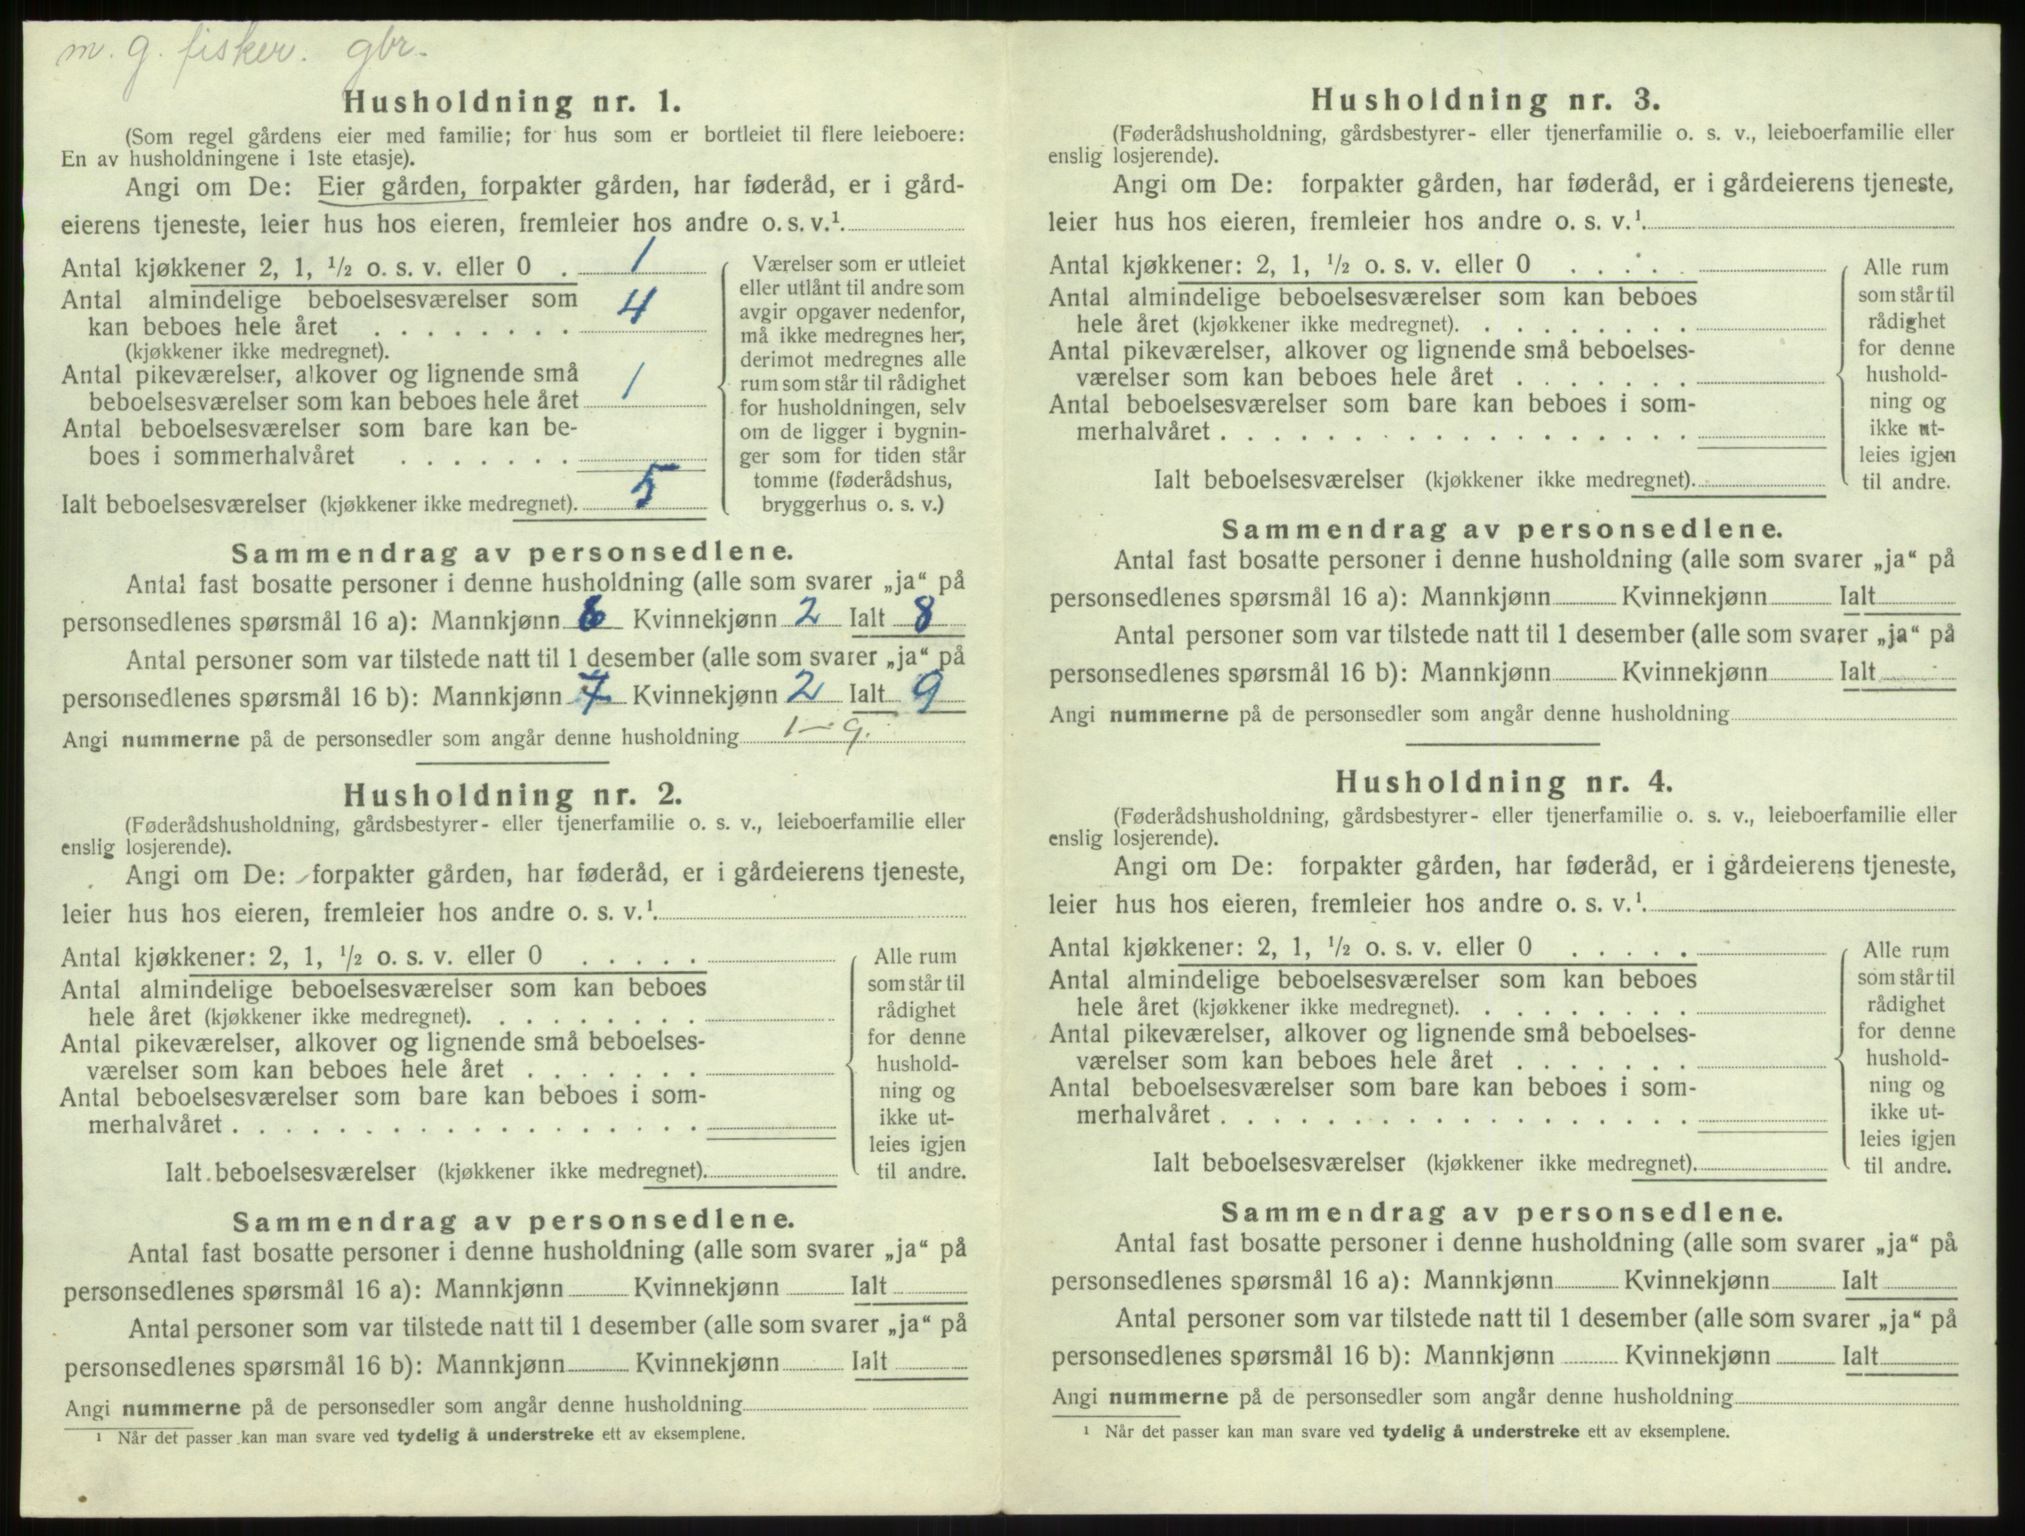 m. g. fisker. gbr.
Husholdning nr. 1.
(Som regel gårdens eier med familie; for hus som er bortleiet til flere leieboere:
En av husholdningene i 1ste etasje).
Angi om De: Eier gården, forpakter gården, har føderåd, er i gård-
eierens tjeneste, leier hus hos eieren, fremleier hos andre o. s. v.¹
Antal kjøkkener 2, 1, ½ o. s. v. eller 0 . 1
Antal almindelige beboelsesværelser som
kan beboes hele året . . . . . . . . 4
(kjøkkener ikke medregnet).
Antal pikeværelser, alkover og lignende små
beboelsesværelser som kan beboes hele året 1
Antal beboelsesværelser som bare kan be-
boes i sommerhalvåret . . . . . . .
Ialt beboelsesværelser (kjøkkener ikke medregnet). 5
Værelser som er utleiet
eller utlånt til andre som
avgir opgaver nedenfor,
må ikke medregnes her,
derimot medregnes alle
rum som står til rådighet
for husholdningen, selv
om de ligger i bygnin-
ger som for tiden står
tomme (føderådshus,
bryggerhus o. s. v.)
Sammendrag av personsedlene.
Antal fast bosatte personer i denne husholdning (alle som svarer „ja“ på
personsedlenes spørsmål 16 a): Mannkjønn 6 Kvinnekjønn 2 Ialt 8
Antal personer som var tilstede natt til 1 desember (alle som svarer „ja“ på
personsedlenes spørsmål 16 b): Mannkjønn 7 Kvinnekjønn 2 Ialt 9
Angi nummerne på de personsedler som angår denne husholdning 1-9.
Husholdning nr. 2.
(Føderådshusholdning, gårdsbestyrer- eller tjenerfamilie o. s. v., leieboerfamilie eller
enslig losjerende).
Angi om De: forpakter gården, har føderåd, er i gårdeierens tjeneste,
leier hus hos eieren, fremleier hos andre o. s. v.¹
Antal kjøkkener: 2, 1, ½ o. s. v. eller 0 . . . . .
Antal almindelige beboelsesværelser som kan beboes
hele året (kjøkkener ikke medregnet). . . . . . . . .
Antal pikeværelser, alkover og lignende små beboelses-
værelser som kan beboes hele året . . . . . . .
Antal beboelsesværelser som bare kan beboes i som-
merhalvåret . . . . . . . . . . . . . . . . . .
Ialt beboelsesværelser (kjøkkener ikke medregnet).
Alle rum
som står til
rådighet
for denne
hushold-
ning og
ikke ut-
leies igjen
til andre.
Sammendrag av personsedlene.
Antal fast bosatte personer i denne husholdning (alle som svarer „ja“ på
personsedlenes spørsmål 16 a): Mannkjønn Kvinnekjønn Ialt
Antal personer som var tilstede natt til 1 desember (alle som svarer „ja“ på
personsedlenes spørsmål 16 b): Mannkjønn Kvinnekjønn Ialt
Angi nummerne på de personsedler som angår denne husholdning
¹ Når det passer kan man svare ved tydelig å understreke ett av eksemplene.
Husholdning nr. 3.
(Føderådshusholdning, gårdsbestyrer- eller tjenerfamilie o. s. v., leieboerfamilie eller
enslig losjerende).
Angi om De: forpakter gården, har føderåd, er i gårdeierens tjeneste,
leier hus hos eieren, fremleier hos andre o. s. v.¹
Antal kjøkkener: 2, 1, ½ o. s. v. eller 0 . . . . .
Antal almindelige beboelsesværelser som kan beboes
hele året (kjøkkener ikke medregnet). . . . . . . . .
Antal pikeværelser, alkover og lignende små beboelses-
værelser som kan beboes hele året . . . . . . .
Antal beboelsesværelser som bare kan beboes i som-
merhalvåret . . . . . . . . . . . . . . . . . .
Ialt beboelsesværelser (kjøkkener ikke medregnet).
Alle rum
som står til
rådighet
for denne
hushold-
ning og
ikke ut-
leies igjen
til andre.
Sammendrag av personsedlene.
Antal fast bosatte personer i denne husholdning (alle som svarer „ja“ på
personsedlenes spørsmål 16 a): Mannkjønn Kvinnekjønn Ialt
Antal personer som var tilstede natt til 1 desember (alle som svarer „ja“ på
personsedlenes spørsmål 16 b): Mannkjønn Kvinnekjønn Ialt
Angi nummerne på de personsedler som angår denne husholdning
Husholdning nr. 4.
(Føderådshusholdning, gårdsbestyrer- eller tjenerfamilie o. s. v., leieboerfamilie eller
enslig losjerende).
Angi om De: forpakter gården, har føderåd, er i gårdeierens tjeneste,
leier hus hos eieren, fremleier hos andre o. s. v.¹
Antal kjøkkener: 2, 1, ½ o. s. v. eller 0 . . . . .
Antal almindelige beboelsesværelser som kan beboes
hele året (kjøkkener ikke medregnet). . . . . . . . .
Antal pikeværelser, alkover og lignende små beboelses-
værelser som kan beboes hele året . . . . . . .
Antal beboelsesværelser som bare kan beboes i som-
merhalvåret . . . . . . . . . . . . . . . . . .
Ialt beboelsesværelser (kjøkkener ikke medregnet).
Alle rum
som står til
rådighet
for denne
hushold-
ning og
ikke ut-
leies igjen
til andre.
Sammendrag av personsedlene.
Antal fast bosatte personer i denne husholdning (alle som svarer „ja“ på
personsedlenes spørsmål 16 a): Mannkjønn Kvinnekjønn Ialt
Antal personer som var tilstede natt til 1 desember (alle som svarer „ja“ på
personsedlenes spørsmål 16 b): Mannkjønn Kvinnekjønn Ialt
Angi nummerne på de personsedler som angår denne husholdning
¹ Når det passer kan man svare ved tydelig å understreke ett av eksemplene.